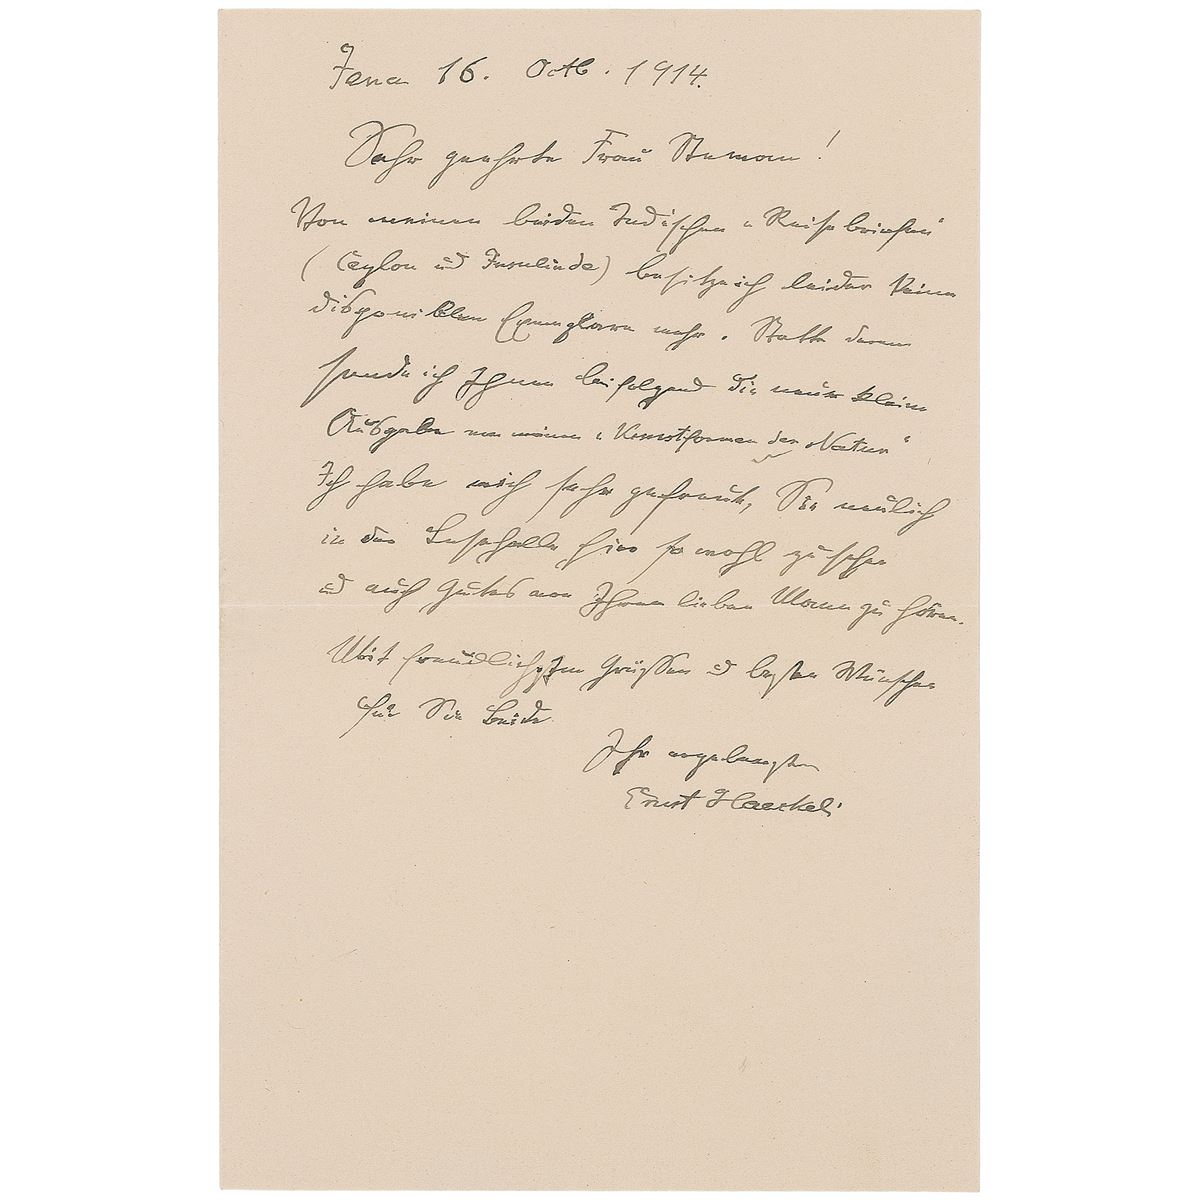 Jena 16. Octb. 1914.
Sehr geehrte Frau
Von meinen beiden Indischen „Reisebriefen"
(Ceylon ud Insulinde) besitze ich leider keine
disponiblen Exemplare mehr. Statt deren
sende ich Ihnen beifolgend die neue kleine
Ausgabe von meinen „Kunstformen der Natur"
Ich habe mich sehr gefreut, Sie neulich
in der Lesehalle hier so wohl zu sehen
ud auch Gutes von Ihrem lieben Mann zu hören.
Mit freundlichsten Grüssen ud besten Wünschen
für Sie Beide
Ihr ergebenster
Ernst Haeckel.